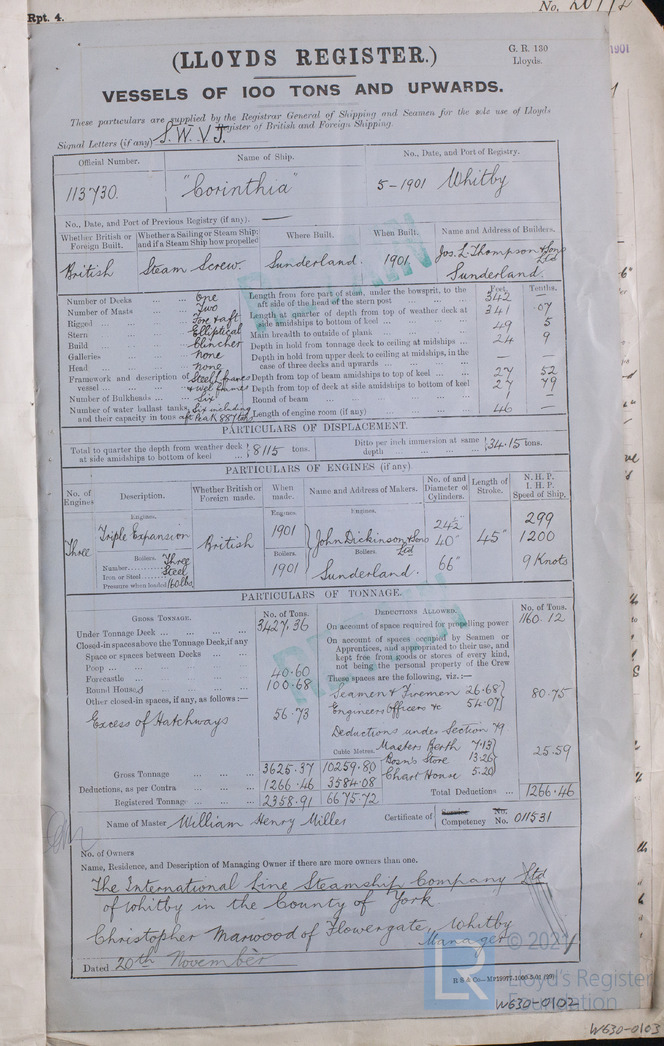 Rpt. 4.
No. 20772
1901
(LLOYDS REGISTER.)
G. R. 130
Lloyds.
VESSELS OF 100 TONS AND UPWARDS.
These particulars are supplied by the Registrar General of Shipping and Seamen for the sole use of Lloyds
Register of British and Foreign Shipping.
Signal Letters (if any) S. W. V. J.
Official Number. Name of Ship. No., Date, and Port of Registry.
113730. "Corinthia" 5-1901 Whitby
No., Date, and Port of Previous Registry (if any). —
Whether British or Foreign Built. Whether a Sailing or Steam Ship; and if a Steam Ship how propelled Where Built. When Built. Name and Address of Builders.
British Steam Screw. Sunderland. 1901. Jos. L. Thompson & Sons Ltd Sunderland.
Feet. Tenths.
Number of Decks ... ... One
Number of Masts ... Two
Rigged ... Fore & aft
Stern ... Elliptical
Build ... Clincher
Galleries ... None
Head ... None
Framework and description of vessel ... Steel frames & web frames
Number of Bulkheads ... Six
Number of water ballast tanks, and their capacity in tons Six including aft Peak 887 tons
Length from fore part of stem, under the bowsprit, to the aft side of the head of the stern post ... 342 —
Length at quarter of depth from top of weather deck at side amidships to bottom of keel ... 341 .07
Main breadth to outside of plank ... 49 5
Depth in hold from tonnage deck to ceiling at midships ... 24 9
Depth in hold from upper deck to ceiling at midships, in the case of three decks and upwards ... — —
Depth from top of beam amidships to top of keel ... 27 52
Depth from top of deck at side amidships to bottom of keel 27 79
Round of beam ... 1 —
Length of engine room (if any) ... 46 —
PARTICULARS OF DISPLACEMENT.
Total to quarter the depth from weather deck at side amidships to bottom of keel ... 8115 tons. Ditto per inch immersion at same depth ... 34.15 tons.
PARTICULARS OF ENGINES (if any)
No. of Engines Description. Whether British or Foreign made. When made. Name and Address of Makers. No. of and Diameter of Cylinders. Length of Stroke. N. H. P. I. H. P. Speed of Ship.
Engines. Engines. Engines.
Three Triple Expansion British 1901 John Dickinson & Sons Ltd 24½" 40" 66" 45" 299 1200 9 Knots
Boilers. Boilers. Boilers.
Number Three 1901 Sunderland.
Iron or Steel Steel
Pressure when loaded 160 lbs.
PARTICULARS OF TONNAGE.
GROSS TONNAGE. No. of Tons. DEDUCTIONS ALLOWED. No. of Tons.
Under Tonnage Deck ... 3427.36
On account of space required for propelling power 1160.12
Closed-in spaces above the Tonnage Deck, if any
Space or spaces between Decks ...
Poop ...
Forecastle ... 40.60
Round Houses ... 100.68
Other closed-in spaces, if any, as follows :—
Excess of Hatchways 56.73
On account of spaces occupied by Seamen or Apprentices, and appropriated to their use, and kept free from goods or stores of every kind, not being the personal property of the Crew
These spaces are the following, viz. :—
Seamen & Firemen 26.68
Engineers Officers &c 54.07
80.75
Deductions under Section 79
Cubic Metres. Masters Berth 7.13
Bosn's Store 13.26
Chart House 5.20
25.59
Gross Tonnage ... 3625.37 10259.80
Deductions, as per Contra ... 1266.46 3584.08
Registered Tonnage ... 2358.91 6675.72
Total Deductions ... 1266.46
Name of Master William Henry Milles Certificate of Service Competency No. No. 011531
No. of Owners
Name, Residence, and Description of Managing Owner if there are more owners than one.
The International Line Steamship Company Ltd
of Whitby in the County of York
Christopher Marwood of Flowergate, Whitby
Manager
Dated 20th November
© 2021
LR
Lloyd's Register
Foundation
W630-0102
W630-0103